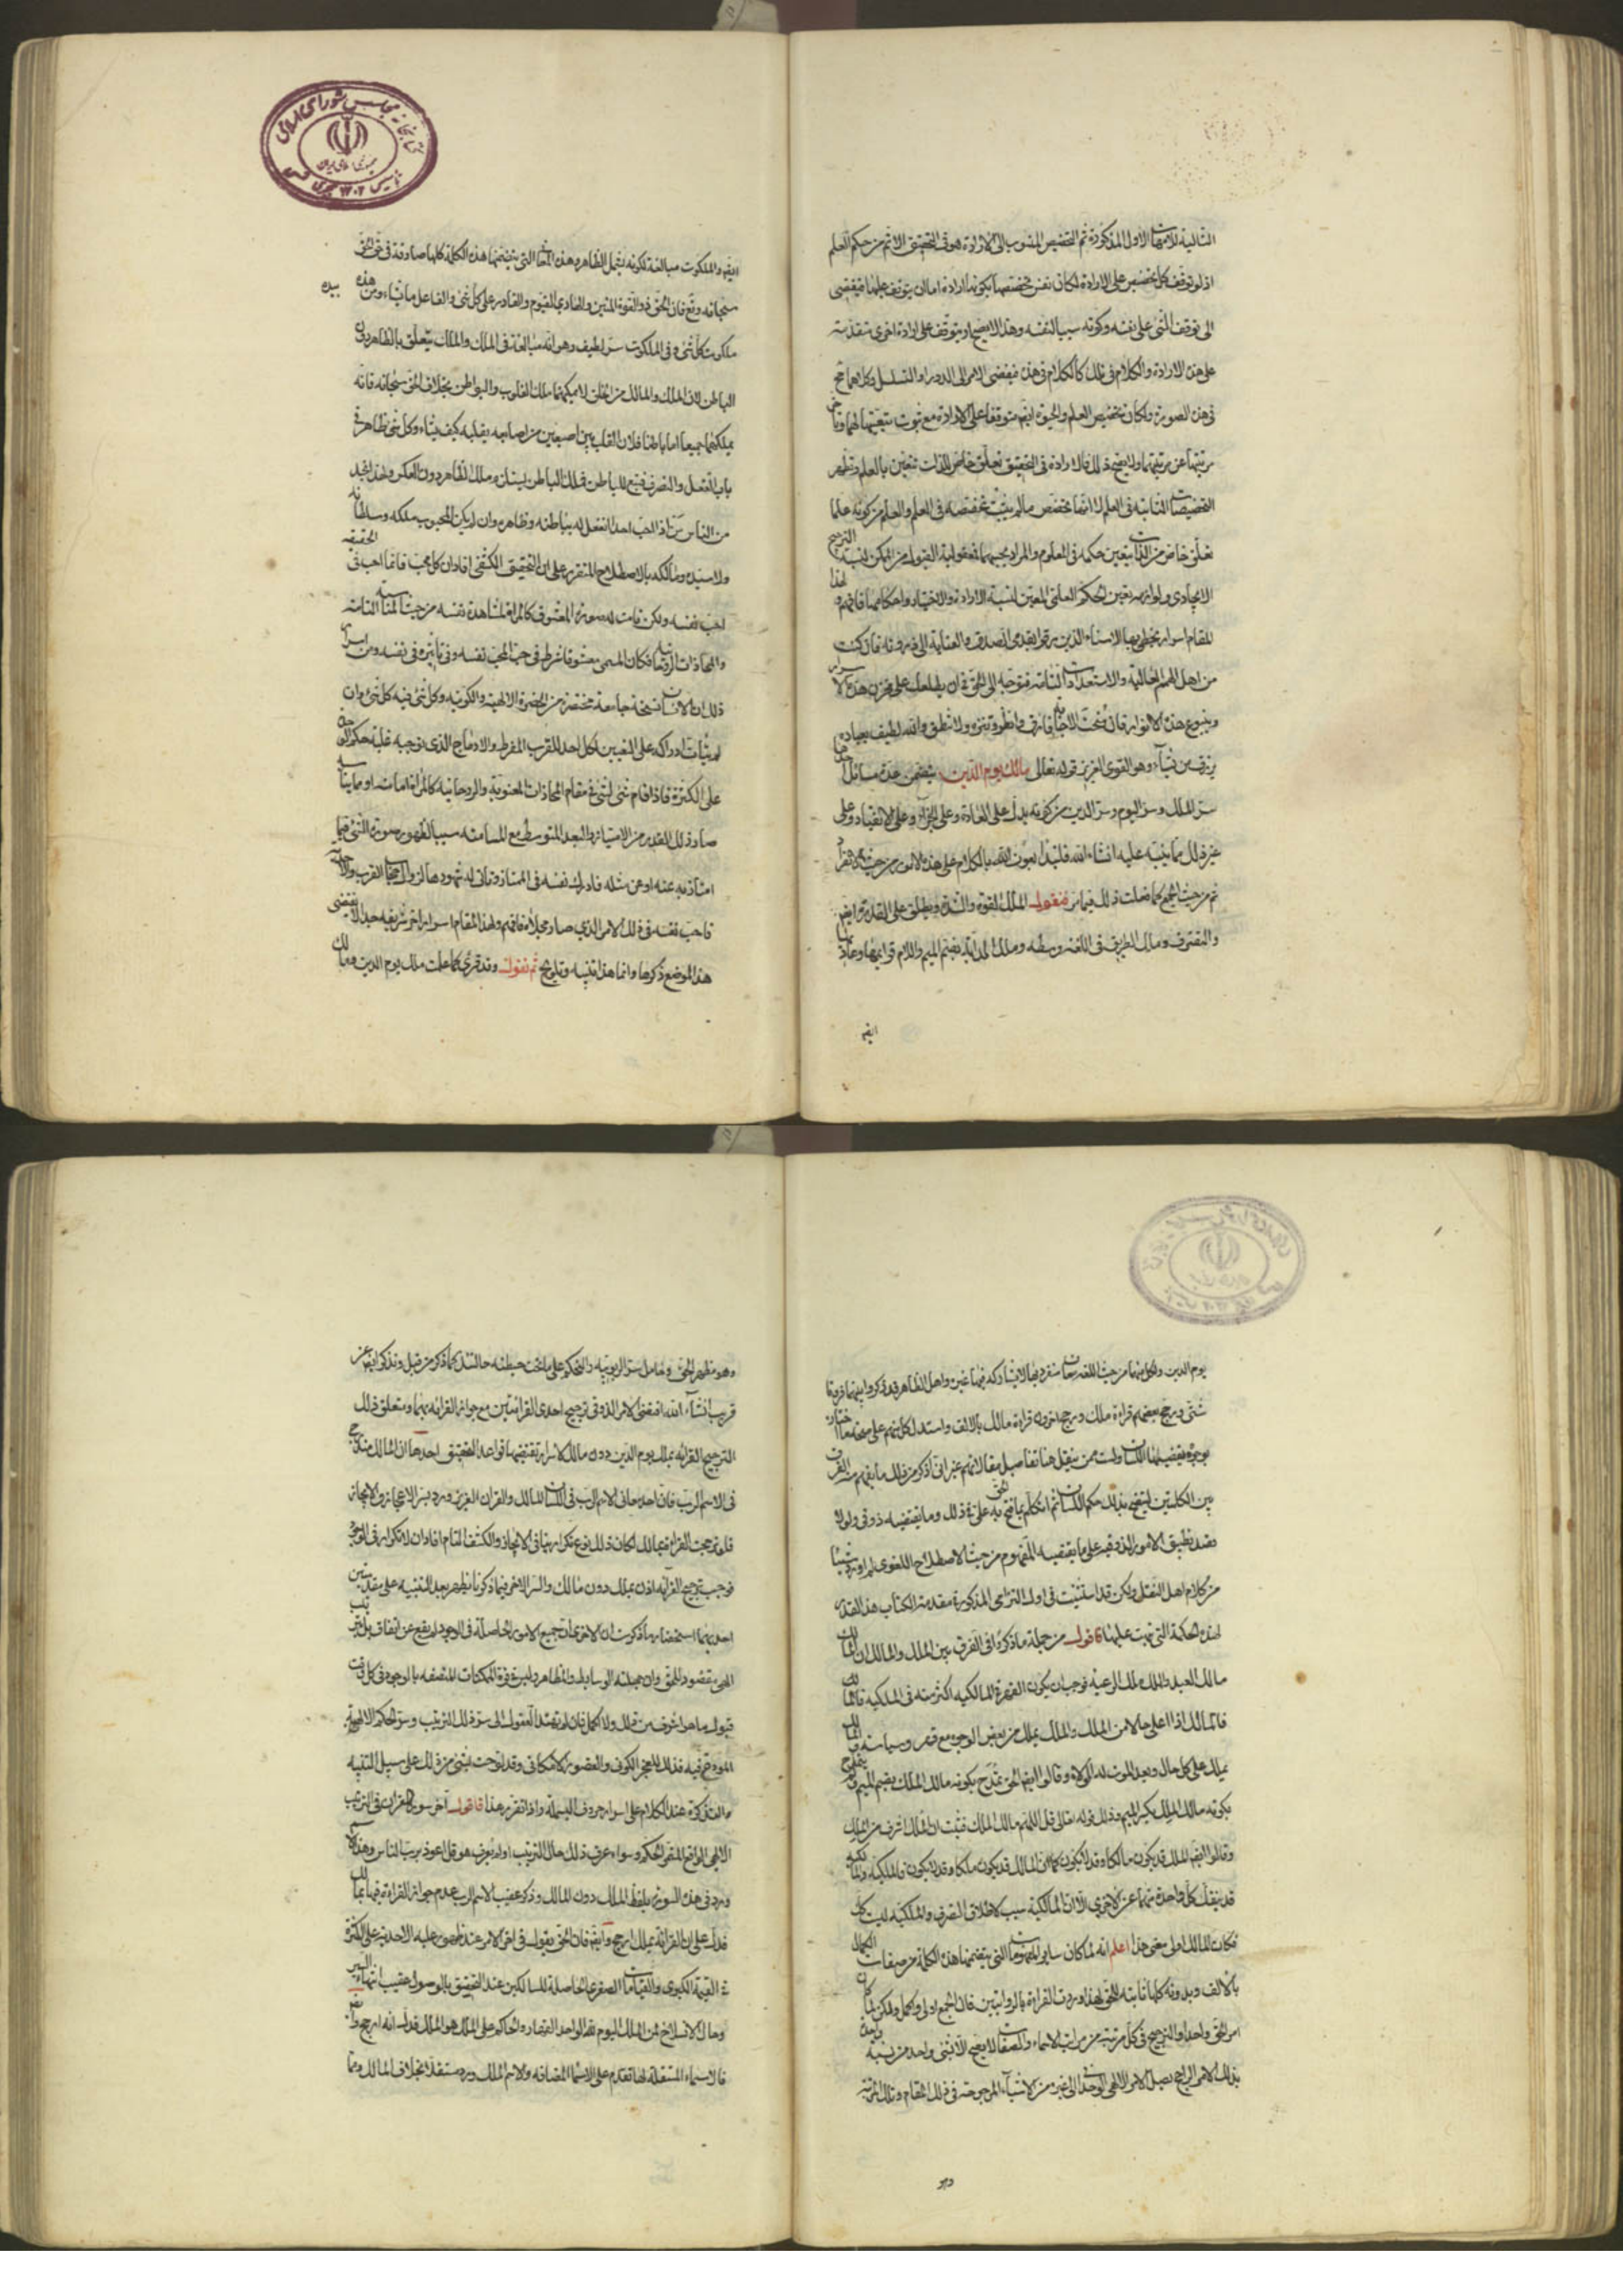 التالية للأمهات الاول المذكورة ثم التخصيص المنسوب الى الارادة هو فى التحقيق الاتم من حكم العلم
اذ لو توقف كل تخصيص على الارادة لكان نفس تخصصها بكونها ارادة اما ان يتوقف عليها فيفضى
الى توقف الشئ على نفسه وكونه سببا لنفسه وهذا لا يصح او يتوقف على ارادة اخرى متقدمة
على هذه الارادة والكلام فى تلك كالكلام فى هذه فيفضى الامر الى الدور او التسلسل وكلاهما مح
فى هذه الصورة ولكان تخصيص العلم والحيوة ايضا متوقفا على الارادة مع ثبوت تبعيتها لهما وتاخر
مرتبتها عن مرتبتهما ولا يصح ذلك فالارادة فى التحقيق تعلق خاص للذات تتعين بالعلم وتظهر
التخصيصات الثابتة فى العلم لا انها تخصص ما لم يثبت تخصصه فى العلم والعلم من كونه علما
تعلق خاص من الذات يتعين حكمه فى المعلوم والمراد بحسبهما فمعقولية القبول من الممكن لنسبة الترجيح
الايجادى ولوازمه تعين الحكم العلمى المعين لنسبة الارادة والاختيار واحكامهما فافهم ولهذا
المقام اسرار يحظر بها الامناء الذين رقوا بقدمى الصدق والعناية الى ذروته فان كنت
من اهل الهمم العالية والاستعدادات التامة فتوجه الى الحق فى ان يطلعك على مخزن هذه الاسرار
وينبوع هذه الانوار فان منحت الاجابة فارق وانظر وتنزه ولا تنطق والله لطيف بعباده
يرزق من يشآء وهو القوى العزيز قوله تعالى مالك يوم الدين يتضمن عدة مسائل احدها
سر الملك وسر اليوم وسر الدين من كونه يدل على العادة وعلى الجزآء وعلى الانقياد وعلى
غير ذلك مما ينبه عليه انشاء الله فلنبدأ بعون الله بالكلام على هذه الامور من حيث الانفراد
ثم من حيث الجمع كما فعلت ذلك فيما مر فنقول الملك القوة والشدة ويطلق على القدرة ايضا
والتصرف وملك الطريق فى اللغة وسطه وملك الدابة بضم الميم واللام قوائمها وهاديها
ايضا
ايضا والملكوت مبالغة لكونه يشمل الظاهر وهذه المعانى التى يتضمنها هذه الكلمة كلها صادقة فى حق الحق
سبحانه وتع فان الحق ذو القوة المتين والهادى القيوم والقادر على كل شئ والفاعل ما يشاء ومن بيده
ملكوت كل شئ وفى الملكوت سر لطيف وهو انه مبالغة فى الملك والملك يتعلق بالظاهر دون
الباطن لان الملك والمالك من الخلق لا يمكنهما ملك القلوب والبواطن بخلاف الحق سبحانه فانه
يملكهما جميعا اما باطنا فلان القلب بين اصبعين من اصابعه يقلبه كيف يشاء وكل شئ ظاهر فى
باب الفعل والتصرف فتبع للباطن فملك الباطن يستلزم ملك الظاهر دون العكس ولهذا نجد
من الناس من اذا احب احدا انفعل له بباطنه وظاهره وان لم يكن المحبوب ملكه وسلطانه
ولا سيده ومالكه بالاصطلاح المتقرر على ان التحقيق الكشفى افاد ان كل محب فانما احب فى الحقيقة
احب نفسه ولكن قامت له صورة المعشوق كالمرآة لمشاهدة نفسه من حيث المناسبة التامة
والمحاذات الروحانية فكان المسمى معشوقا شرط فى حب المحب نفسه وفى تاثيره فى نفسه ومن اسرار
ذلك ان الانسان نسخة جامعة مختصرة من الحضرة الالهية والكونية وكل شئ فيه كل شئ وان
لم يتأت ادراكه على التعيين لكل احد للقرب المفرط والادماج الذى توجبه غلبة حكم الوحدة
على الكثرة فاذا قام شئ لشئ فى مقام المحاذات المعنوية والروحانية كالمرآة امامته او مما يناسبه
صار ذلك القدر من الامتياز والبعد المتوسط مع المسامتة سببا لظهور صورة الشئ فيما
امتاز به عنه او عن مثله فادرك نفسه فى الممتاز وتاتى له شهودها لزوال حجاب القرب والاحدية
فاحب نفسه فى ذلك الامر الذى صار مجلاه فافهم ولهذا المقام اسرار اخر شريفة جدا لا يقتضى
هذا الموضع ذكرها وانما هذا تنبيه وتلويح ثم نقول وقد قرئ كما علمت ملك يوم الدين ومالك
يوم الدين ولكل منهما من حيث اللغة معان ينفرد بها لا يشاركه فيها غيره واهل الظاهر قد ذكروا بينهما فروقا
شتى ورجح بعضهم قراءة ملك ورجح اخرون قراءة مالك بالالف واستدل كل منهم على صحة ما اختاره
بوجوه يقتضيها اللسان ولست ممن ينقل هنا تفاصيل مقالاتهم غير انى اذكر من ذلك ما يفهم منه الفرق
بين الكلمتين ليتضح بذلك حكم اللسان ثم اتكلم بما فتح به الحق على فى ذلك وما يقتضيه ذوقى ولولا
قصد تطبيق الامور الذوقية على ما يقتضيه المفهوم من حيث الاصطلاح اللغوى لم اورد شيئا
من كلام اهل النقل ولكن قد استثنيت فى اول التزامى المذكورة مقدمة الكتاب هذا القدر
لهذه الحكمة التى نبهت عليها فاقول من جملة ما ذكروا فى الفرق بين الملك والمالك ان المالك
مالك العبد والملك ملك الرعية فوجب ان يكون القهر فى المالكية اكثر منه فى الملكية قالوا
فالمالك اذا اعلى حالا من الملك والملك يملك من بعض الوجوه مع قهر وسياسة والمالك
يملك على كل حال وبعد الموت له الولاء وقالوا ايضا الحق تمدح بكونه مالك الملك بضم الميم ولم يتمدح
بكونه مالك الملك بكسر الميم وذلك قوله تعالى قل اللهم مالك الملك فثبت ان الملك اشرف من الملك
وقالوا ايضا الملك قد يكون مالكا وقد لا يكون كما ان المالك قد يكون ملكا وقد لا يكون فالملكية والمالكية
قد ينفك كل واحدة منهما عن الاخرى الا ان المالكية سبب لاطلاق التصرف والملكية ليست كذلك
فكان المالك اولى معنى هذا اعلم انه لما كان ساير المفهومات التى يتضمنها هذه الكلمة من صفات الكمال
بالالف وبدونه كلها ثابتة للحق لهذا وردت القراءة بالروايتين فان الجمع اولى واكمل ولكن لما كان
امر الحق واحدا والترجيح فى كل مرتبة من مراتب الاسماء والصفات لا يصح الا لشئ واحد من نسبة واحدة
بذلك الامر الراجح يصل الامر الالهى الوحدانى الى غيره من الاشيآء المرجوحة فى ذلك المقام وتلك المرتبة
وهو
وهو مظهر الحق وحامل سر الربوبية والتحكم على ما تحت حيطته حالتئذ كما ذكر من قبل ونذكر ايضا عن
قريب انشآء الله اقتضى الامر الذوقى ترجيح احدى القرائتين مع جواز القرائة بهما ومتعلق ذلك
الترجيح القرائة بملك يوم الدين دون مالك لاسرار تقتضيها قواعد التحقيق احدها ان المالك مندرج
فى الاسم الرب فان احد معانى الاسم الرب فى اللسان المالك والقران العزيز ورد بسر الاعجاز والايجاز
فلو ترجحت القراءة بمالك لكان ذلك نوع تكرار ينافى الايجاز والكشف التام افاد ان لا تكرار فى الوجود
فوجب ترجيح القرآئة اذن بملك دون مالك والسر الاخر فيما ذكرنا يظهر بعد التنبيه على مقدمتين
احديهما استحضار ما ذكرت ان الاخر بمآت جميع الامور الحاصلة فى الوجود لم يقع عن اتفاق بل بترتيب
الهى مقصود للحق وان جهلته الوسايط والمظاهر وليس فى قوة الممكنات المتصفة بالوجود فى كل وقت
قبول ما هو اشرف من ذلك ولا اكمل فان لم تهتد العقول الى سر ذلك الترتيب وسر الحكم الالهية
المودعة فيه فذلك للعجز الكونى والقصور الامكانى وقد لوحت بشئ من ذلك على سبيل التنبيه
عند الكلام على اسرار حروف البسملة واذا تقرر هذا فاقول آخر سور القران فى الترتيب
الالهى الواقع المقصود الحكم وسواء عرف ذلك حال الترتيب او لم يعرف هو قل اعوذ برب الناس وهذا الاسم
ورد فى هذه السورة بلفظ الملك دون المالك وذكر عقيب الاسم الرب مع عدم جواز القراءة فيها بمالك
فدل على ان القرائة بملك ارجح وايضا فان الحق يقول فى اخر الامر عند ظهور غلبة الاحدية على الكثرة
فى القيمة الكبرى والقيامات الصغرى الحاصلة للسالكين عند التحقيق بالوصول عقيب انتهاء السير
وحال الانسلاخ لمن الملك اليوم لله الواحد القهار والحاكم على الملك هو الملك فدل انه ارجح وايضا
فالاسماء المستقلة لها تقدم على الاسماء المضافة والاسم الملك ورد مستقلا بخلاف المالك ومما